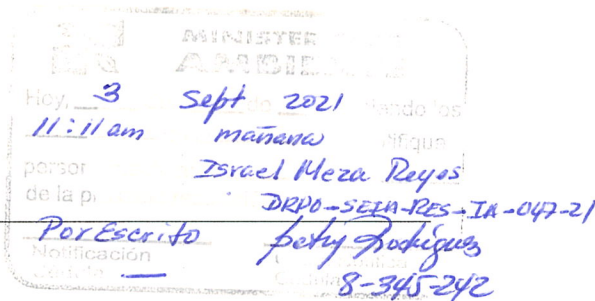 MINISTER
AMBIE
Hoy, 3 Sept de 2021 siendo los
11:11 am mañana notifique
person Israel Meza Reyes
de la p DRPO-SEIA-RES-IA-047-21
Por Escrito Betzy Rodríguez
Notificación
8-345-242